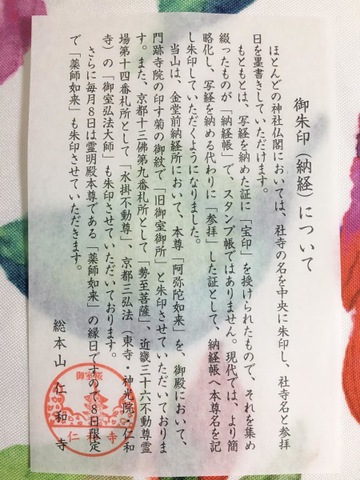 御朱印（納経）について
ほとんどの神社仏閣においては、社寺の名を中央に朱印し、社寺名と参拝
日を墨書きしていただけます。
もともとは、写経を納めた証に「宝印」を授けられたもので、それを集め
綴ったものが「納経帳」で、スタンプ帳ではありません。現代では、より簡
略化し、写経を納める代わりに「参拝」した証として、納経帳へ本尊名を記
し朱印していただくようになりました。
当山は、金堂前納経所において、本尊「阿弥陀如来」を、御殿において、
門跡寺院の印す菊の御紋で「旧御室御所」と朱印させていただいておりま
す。また、京都十三佛第九番札所として「勢至菩薩」、近畿三十六不動尊霊
場第十四番札所として「水掛不動尊」、京都三弘法（東寺・神光院・仁和
寺）の「御室弘法大師」も朱印させていただいております。
さらに毎月8日は霊明殿本尊である「薬師如来」の縁日ですので8日限定
で「薬師如来」も朱印させていただきます。
総本山 仁和寺
仁和寺